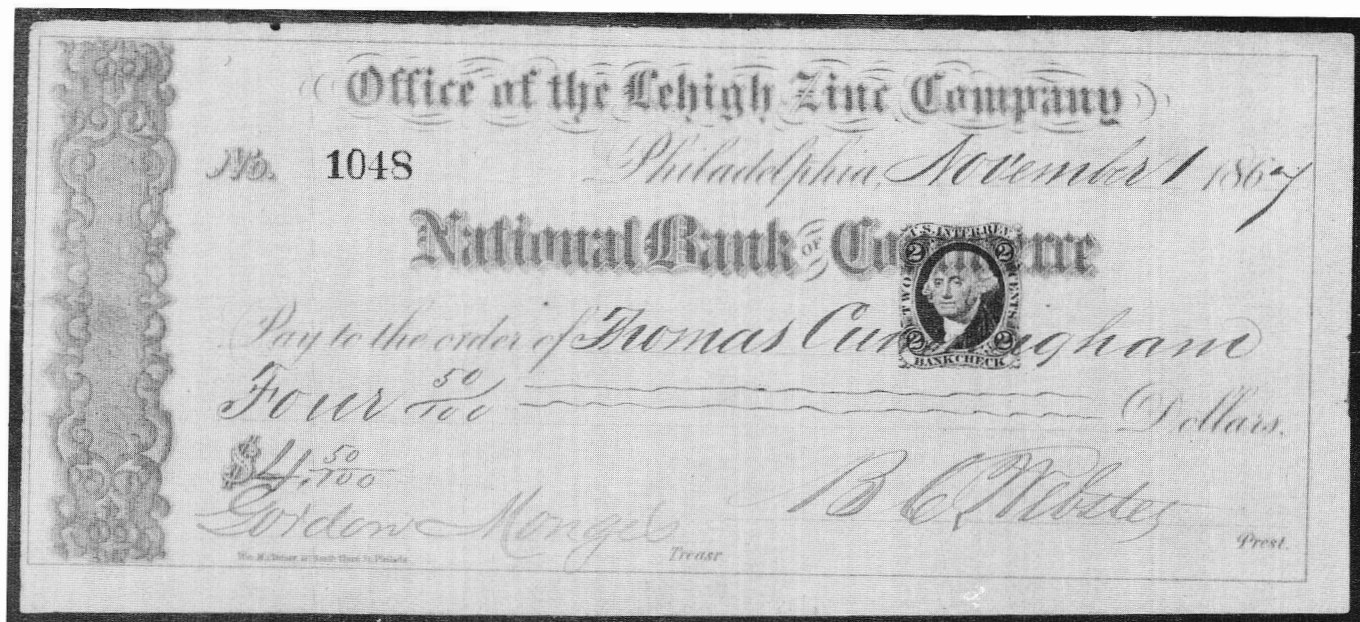 Office of the Lehigh Zinc Company
No. 1048 Philadelphia, November 1 1867
National Bank OF Commerce
U.S. INTER. REV.
2 2
TWO CENTS
2 2
BANK CHECK
Pay to the order of Thomas Cunningham
Four 50/100 Dollars.
$4. 50/100
Gordon Monges Treasr
B C Webster Prest.